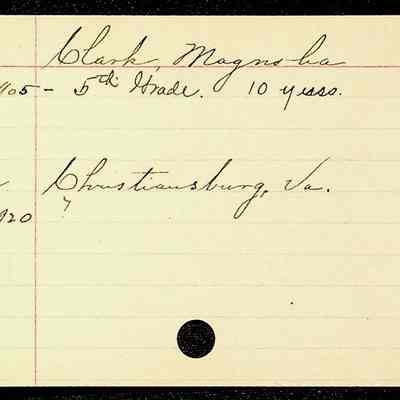 Clark, Magnolia
1105 - 5th Grade. 10 years.
Christiansburg, Va.
920